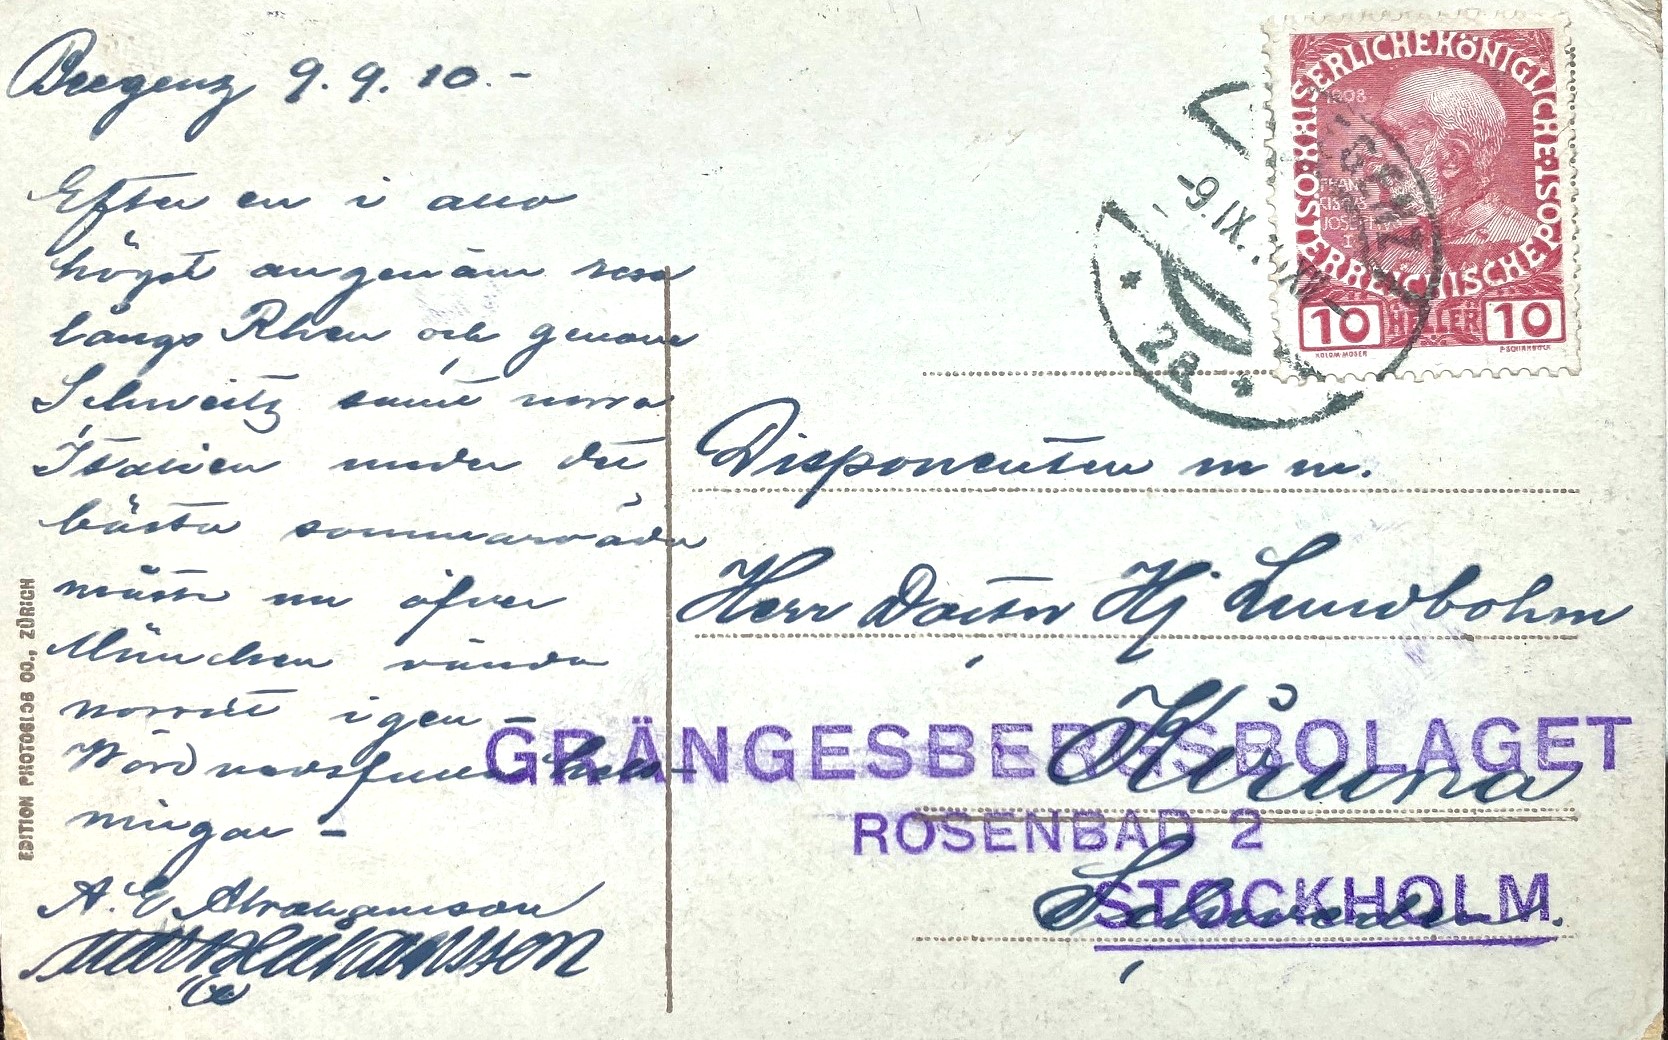 Bregenz 9.9.10.-
Efter en i allo
högst angenäm resa
längs Rhen och genom
Schweitz samt norra
Italien under det
bästa sommarväder
måste nu öfver
München vända
norrut igen –
Wördnadsfulla häls-
ningar –
A. E. Abrahamson
EDITION PHOTOGLOB CO., ZÜRICH
KAISERLICHE KÖNIGLICHE
ÖSTERREICHISCHE POST
1908
FRAN
CISCVS
JOSEPHVS
I
10 HELLER 10
KOLOM·MOSER
F·SCHIRNBÖCK
BREGENZ
-9.IX.
2a
Disponenten m m.
Herr Doctor Hj Lundbohm
Kiruna
Schweden.
GRÄNGESBERGSBOLAGET
ROSENBAD 2
STOCKHOLM